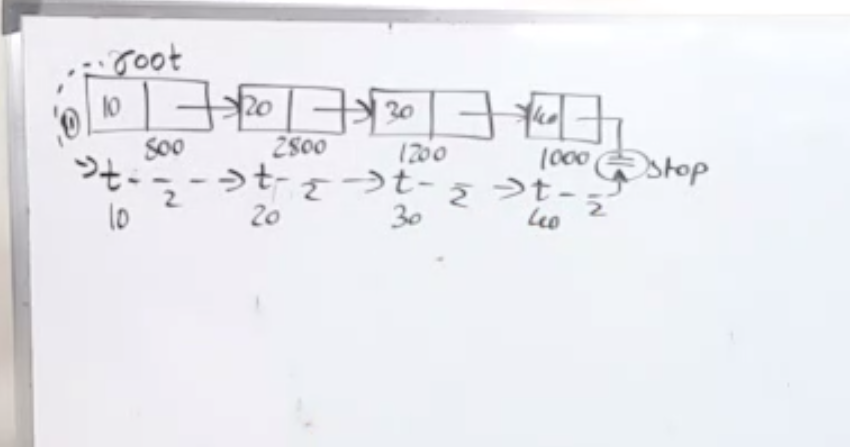 root
10 20 30 40
① 500 2800 1200 1000 stop
t 2 t 2 t 2 t 2
10 20 30 40